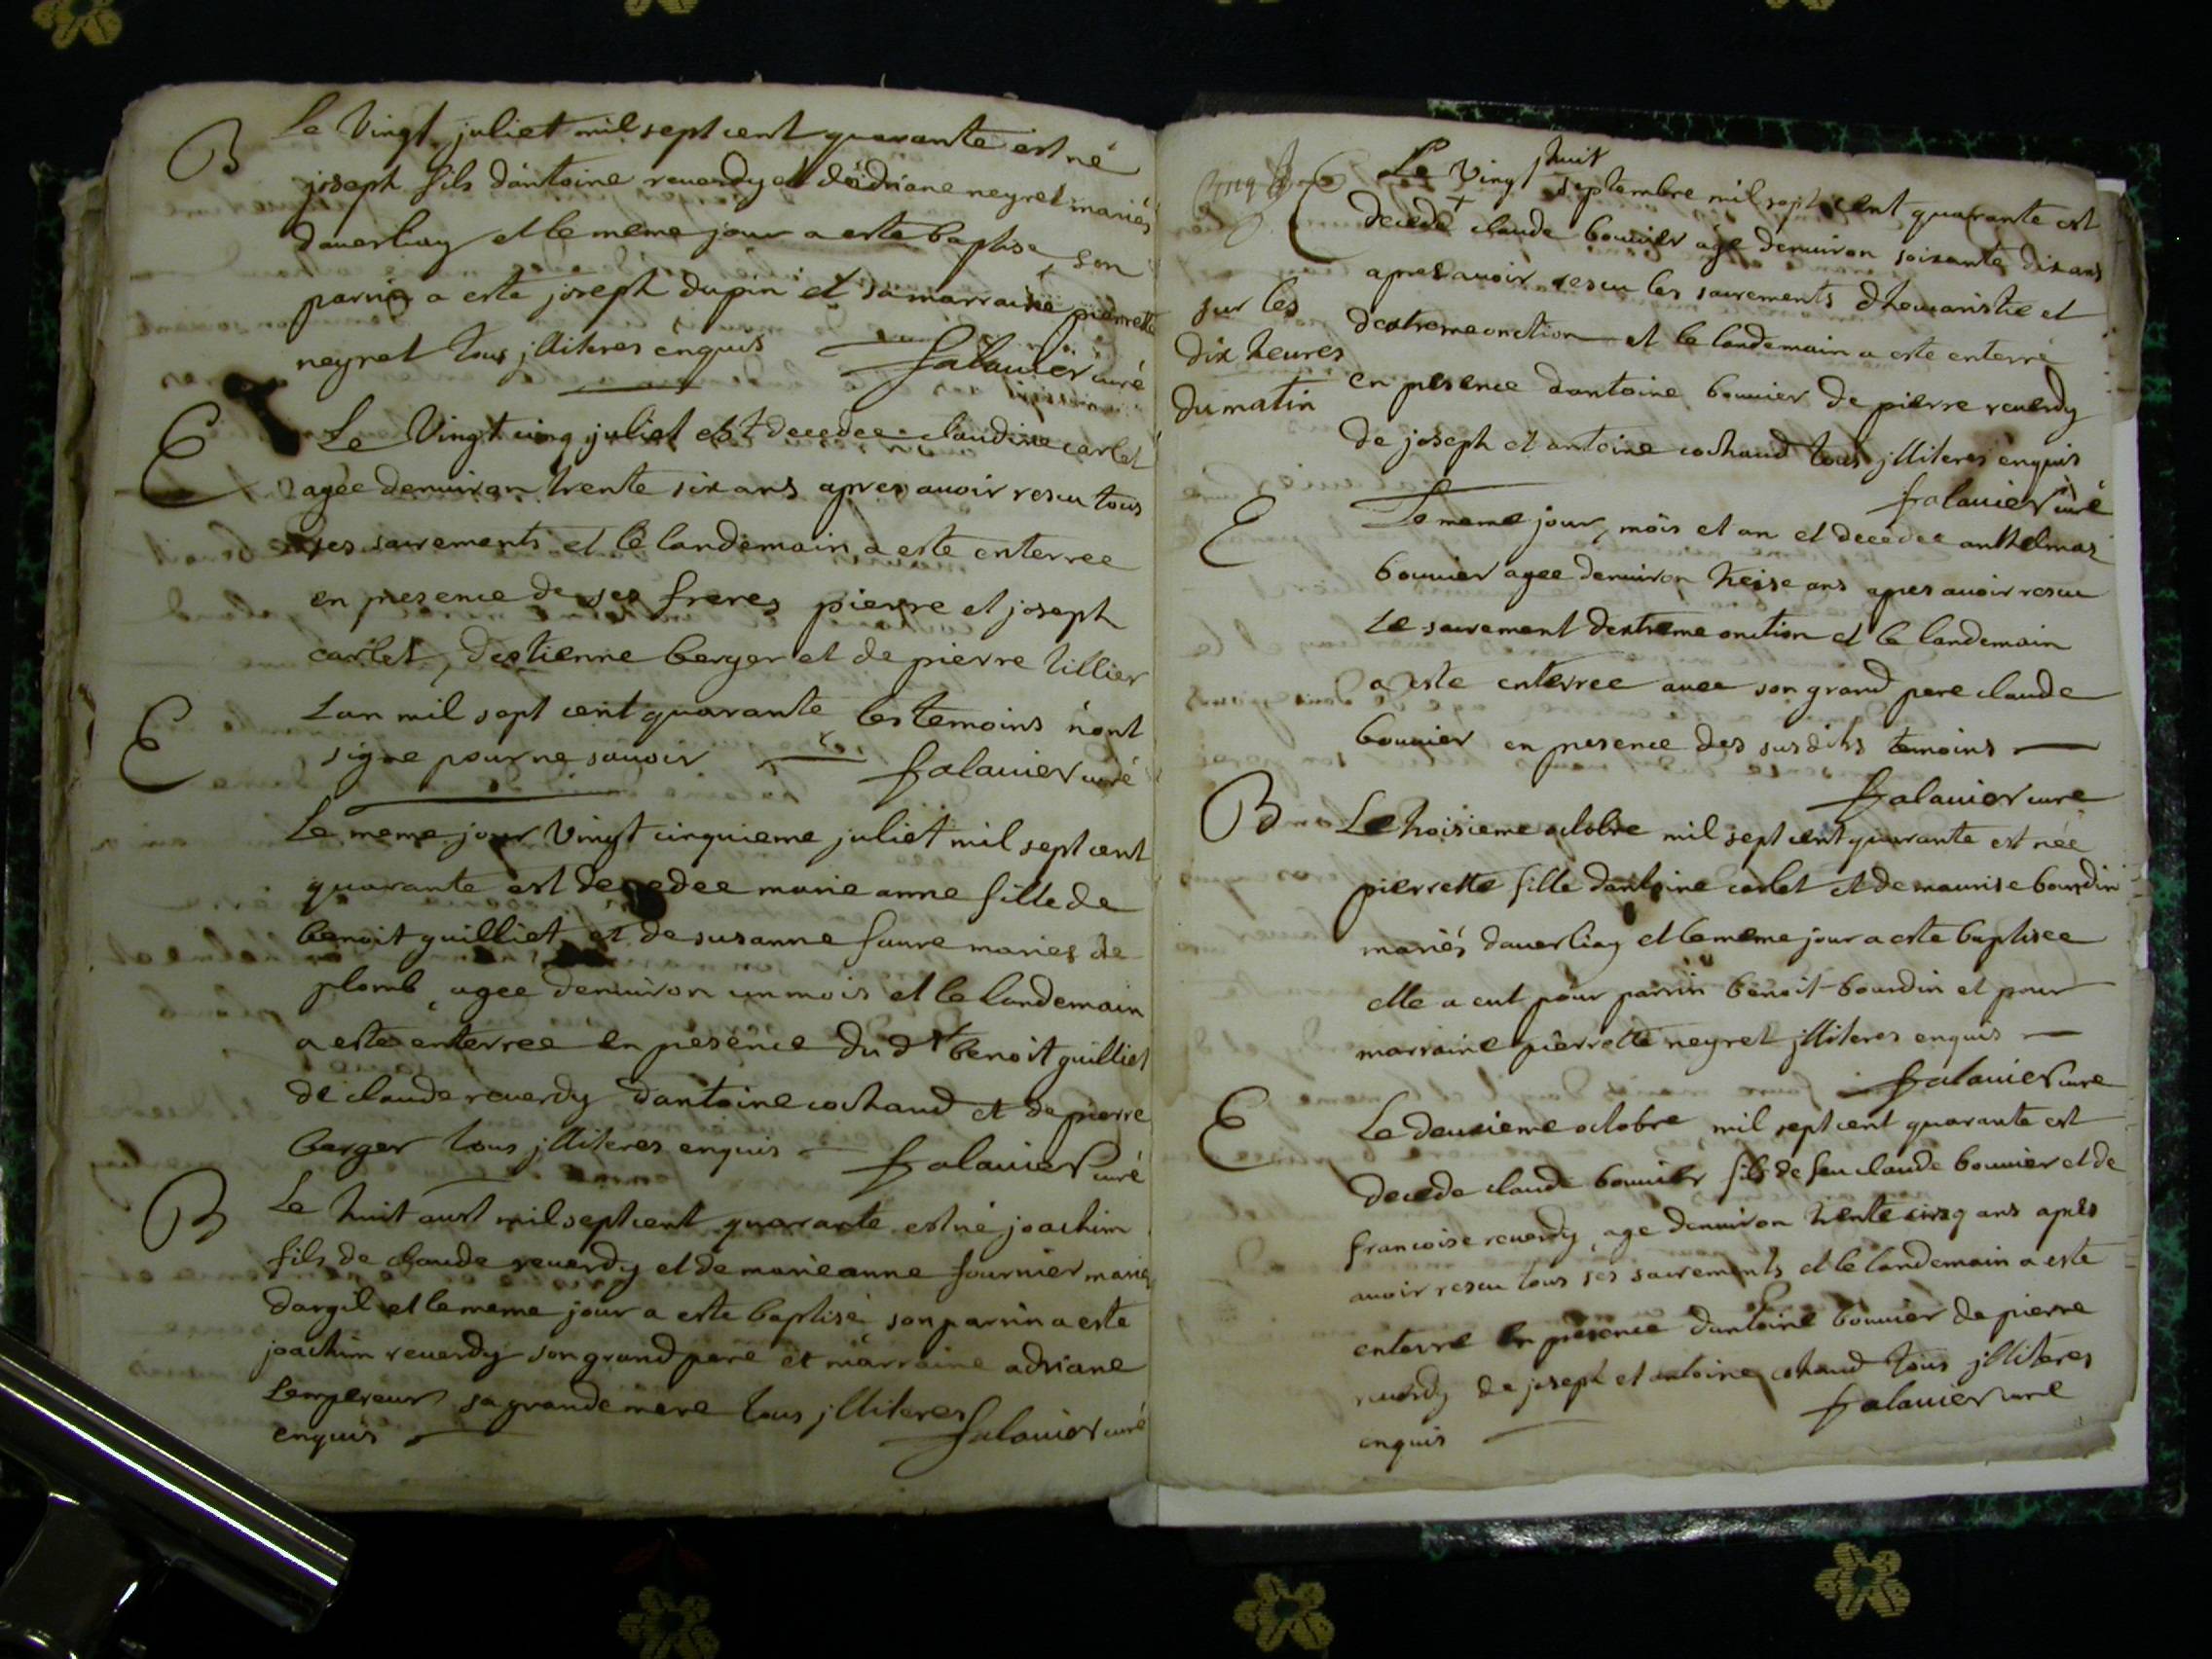 B
Le Vingt juliet mil sept cent quarante est né
joseph fils dantoine reuerdy et dadriane neyret mariés
dauerliay et le meme jour a este baptise son
parrin a este joseph dupin et sa marraine pierrette
neyret tous jlliteres enquis falauier curé
E
Le Vingt cinq juliet est decedee claudine carlet
agée denuiron trente six ans apres auoir reseu tous
ses sacrements et le landemain a este enterree
en presence de ses freres pierre et joseph
carlet, destienne berger et de pierre tillier
E
Lan mil sept cent quarante les temoins n'ont
signe pour ne sauoir falauier curé
Le meme jour Vingt cinquieme juliet mil sept cent
quarante est decedee marie anne fille de
benoit guilliet et de susanne faure maries de
plomb agee denuiron un mois et le landemain
a este enterree en presence du dt benoit guilliet
de claude reuerdy dantoine cochaud et de pierre
berger tous jlliteres enquis falauier curé
B
Le huit aust mil sept cent quarante est né joachim
fils de claude reuerdy et de marie anne fournier maries
dargil et le meme jour a este baptisé son parrin a este
joachim reuerdy son grand pere et marraine adriane
Lempereur sa grande mere tous jlliteres
enquis falauier curé
Le Vingt huit septembre mil sept cent quarante est
E
decedé claude bouuier âge denuiron soixante dix ans
apres auoir reseu les sacrements dheucaristie et
sur les
dextreme onction et le landemain a este enterré
dix heures
en presence dantoine bouuier de pierre reuerdy
du matin
de joseph et antoine cochaud tous jlliteres enquis
falauier curé
E
Le meme jour, mois et an et decedee anthelmaz
bouuier agee denuiron treise ans apres auoir reseu
Le sacrement dextreme onction et le landemain
a este enterree auec son grand pere claude
bouuier en presence des susdits temoins
falauier cure
B
Le troisieme octobre mil sept cent quarante est née
pierrette fille dantoine carlet et de maurise bourdin
mariés dauerliay et le meme jour a este baptisee
elle a eut pour parrin benoit bourdin et pour
marraine pierrette neyret jlliteres enquis
falauier cure
E
Le deuxieme octobre mil sept cent quarante est
decede claude bouuier fils de feu claude bouuier et de
francoise reuerdy age denuiron trente cinq ans apres
auoir reseu tous ses sacrements et le landemain a este
enterre en presence dantoine bouuier de pierre
reuerdy de joseph et antoine cohaud tous jlliteres
enquis falauier cure